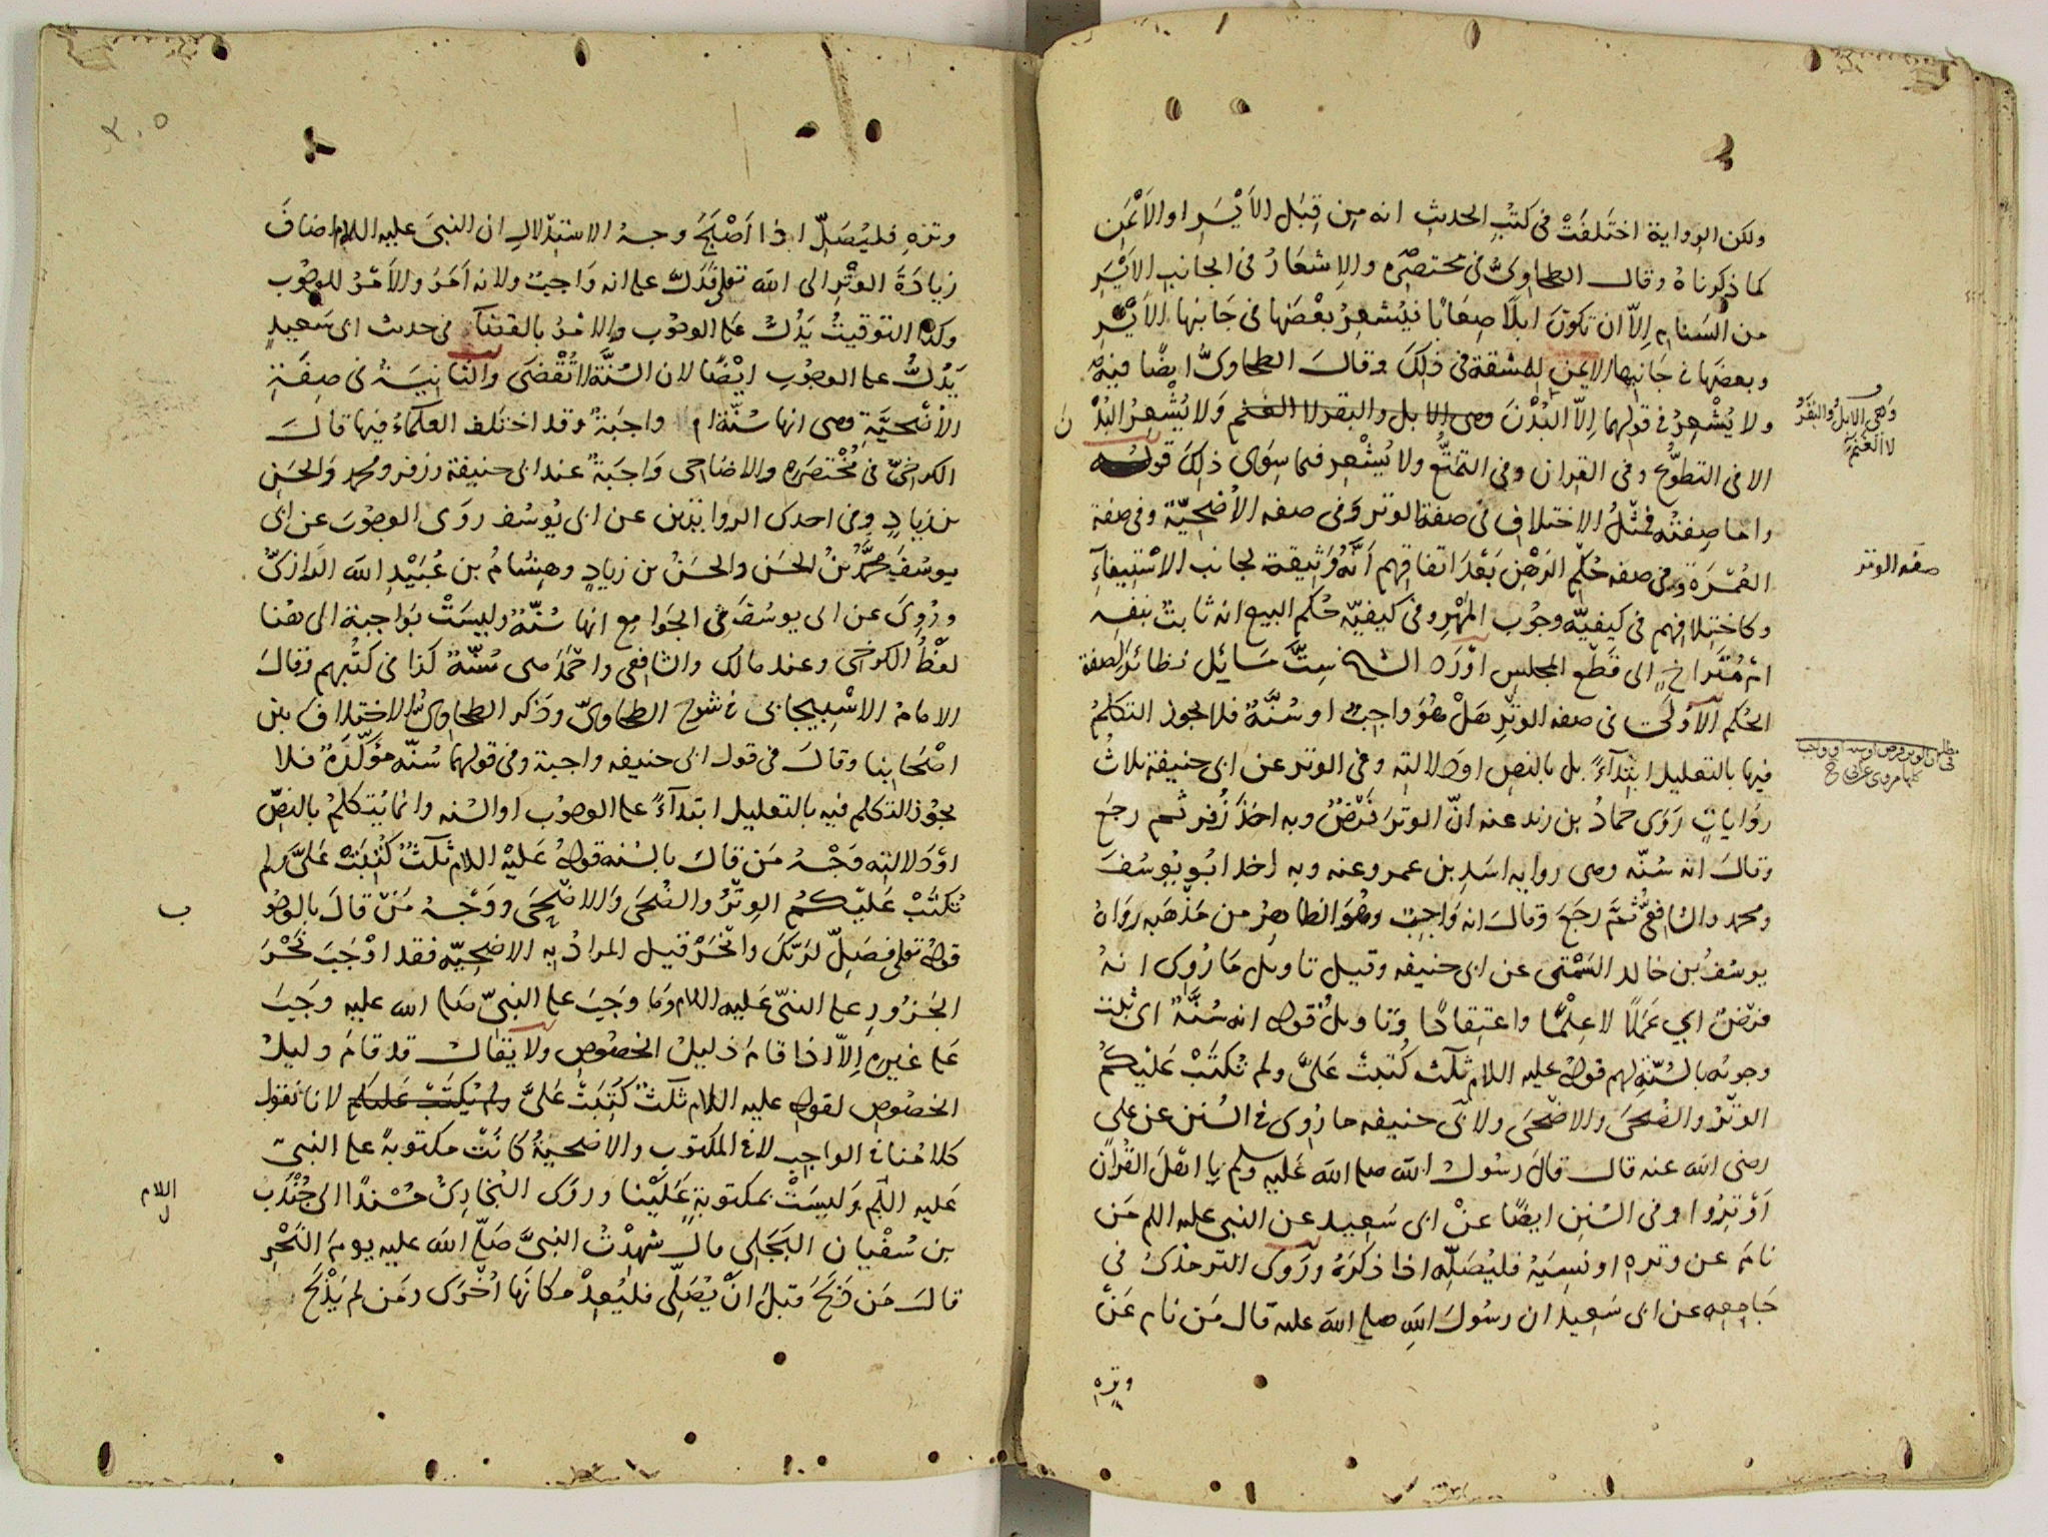 ولكن الرواية اختَلفَتْ في كتبِ الحديثِ انه مِن قِبَل الأَيْسَرِ او الأَيْمَنِ
كما ذكرناهُ وقال الطحاوىُّ فى مختصَرِه والإشعَارُ فى الجانبِ الأَيْسَرِ
من السَنامِ إلاّ ان تكونَ ابلًا صِعَابًا فيُشعِرُ بعْضَها فى جَانبِها الأَيْسَرِ
وبعضَها فى جَانبِها الايمنِ للمشقة فى ذلِكَ وقالَ الطحاوىُّ ايضًا فيه
ولا يُشْعِرُ فى قولِهما اِلاّ البُدْنَ وهى الابل والبقر لا الغنم وَلا يُشْعِرُ البُدْ نَ
وَهى الابلُ والبَقَرُ
لا الغَنَمُ
الا فى التطوُّع وفى القِران وفى التمتُّع ولا يُشْعِر فيما سِوَى ذلِكَ قولُه
وامّا صِفتُه فمِثْلُ الاختلافِ فى صفة الوتر وَفى صفه الأُضْحِيّة وفى صفة
العُمْرَة وفى صفه حُكْمِ الرَهْنِ بَعْدَ اتفاقِهم اَنَّهُ وَثِيقة لجانب الاسْتيفآءِ
صفه الوتر
وكاختِلافِهم فى كيفيّه وجُوبِ المَهْرِ وفى كيفيّه حُكمِ البيع انه ثابتٌ بنفسِه
امْ مُتَراخٍ الى قَطْع المجلسِ اوْرَدَ الشيخ سِتَّ مَسَايُل نظائرَ الصفة
الحُكم الاُولى فى صفه الوِتْرِ هَلْ هُوَ واجبٌ او سُنَّةٌ فلا يجوز التكلمُ
فيها بالتعليل ابْتِدَآءً بل بالنصِ اوْ دلالتِه وفى الوتر عن ابى حنيفة ثلاثُ
روَاياتٍ رَوَى حمادُ بن زيد عنه انّ الوترَ فَرْضٌ وبه اخذَ زُفر ثم رجعَ
وقالَ انه سُنّه وهى روايه اسَدِ بن عمرو عنه وبه اخذ ابُو يُوسُفَ
ومحمد والشافعىُّ ثُمَّ رجَعَ وَقالَ انه وَاجِبٌ وهُوَ الظاهِرُ من مَذْهَبِه رَوَاهُ
يوسُفُ بن خالد السَمْتى عن ابى حنيفه وقيل تاويل مَا رُوِى انهُ
فرْضٌ اىْ عَمَلًا لا عِلْمًا واعتِقادًا وتاويلُ قوله انه سُنَّةٌ اى ثبت
وجوبُه بالسُنّةِ لهم قولُه عليه السلام ثَلَثٌ كُتبتْ عَلىَّ ولم تُكتَبْ عَليْكُمُ
الوتْرُ والضُحَى والاضْحَى ولابى حنيفه ما رُوِى فى السُنن عن على
رضى الله عنه قال قالَ رسُولُ الله صلى الله عَليه وسلم يا اهْلَ القُرْآن
اَوْتِرُوا وفى السُنن ايضًا عنْ ابى سَعِيد عن النبى عليه السلم مَن
نامَ عن وتره او نسِيَهُ فليُصَلِّه اذا ذكَرَهُ ورَوَى الترمذىُّ فى
جَامِعه عن ابى سَعِيد ان رسُولَ اللهِ صلى الله عليه قال مَن نام عَنْ
وتره
وترِه فليُصَلِّ اذا اَصْبَحَ وجهُ الاستِدْلالِ ان النبىَ عليه السلام اضافَ
زيادَةَ الوِتْرِ الى الله تعلى فدَلَّ على انه وَاجبٌ ولانه اَمَرَ والأَمْرُ للوجُوبِ
وكذا التوقيتُ يَدُلُّ على الوجُوب والامْرُ بالقضآءِ فى حديث ابى سَعِيدٍ
يَدُلُّ على الوجُوبِ ايْضًا لان السُنَّة لا تُقْضَى والثَانِيَةُ فى صِفَةِ
الأضْحِيَّةِ وهى انها سُنّة ام واجبَةٌ وقد اختَلف العلَمَاءُ فيها قالَ
الكرخىّ فى مُخْتصَره والاضَاحِى وَاجبَةٌ عند ابى حنيفة وزفر ومحمدٍ وَالحسَنِ
بن زيادٍ وفى احدَى الروايتين عن ابى يُوسُف روَى الوجُوبَ عن ابى
يوسُفَ محمَّدُ بْنُ الحسَن والحَسَنُ بن زيادٍ وهِشامُ بن عُبَيْدِ الله الرَازىُّ
ورُوِىَ عن ابى يوسُفَ فى الجَوامِع انها سُنّةٌ وليسَتْ بوَاجبة الى هُنا
لفظُ الكرخى وعند مالك والشافِعى واحْمَدَ هى سُنّةٌ كذا فى كتُبِهم وَقالَ
الامامُ الاسْبِيجابى فى شرح الطحاوىّ وذكر الطحاوىُّ الاختلافَ بين
اصْحَابنا وقالَ فى قول ابى حنيفه واجبة وفى قولِهما سُنّه مؤكّدَةٌ فلا
يجُوز التكلم فيه بالتعليل ابتدآءً على الوجوُب او السُنه وانما يُتكلمُ بالنصِّ
اوْ دَلالتِه وَجْهُ مَن قالَ بالسُنه قولهُ عَليْه السلام ثَلَثٌ كُتِبَتْ عَلىَّ ولم
تُكتَبْ عَليْكُمُ الوِتْرُ والضُحَى وَالاضْحَى ووَجْهُ مَنْ قالَ بالوجُو
ب
قولُه تعلى فصَلِّ لرَبِّكَ وانْحَرْ قيل المرادُ به الاضحِيّه فقد اوْجَبَ نَحْرَ
الجَزُورِ على النبىّ عَليه السلام وَمَا وجَبَ على النبىّ صَلى الله عليه وجَبَ
عَلى غيرِه اِلاّ اذا قامَ دَليلُ الخصُوصِ ولا يقالُ قد قامَ دليلُ
الخصُوصِ لقوله عليه السلام ثَلَثٌ كُتِبَتْ عَلىَّ ولم تُكْتَبْ عَليكم لانا نقول
كلامُنا فى الواجبِ لا فى المكتوب والاضحيةُ كانَتْ مكتوبةً على النبىّ
عَليه السلم وَليسَتْ بمكتوبةٍ عَليْنا وروَى البُخارىُّ مُسْندًا الى جُنْدَب
السلام
بن سُفْيان البَجَلى قال شهِدْتُ النبىَّ صَلّى الله عليه يومَ النَحْرِ
قالَ مَن ذَبَحَ قبلَ انْ يُصَلِّى فليُعِدْ مكانَها اُخْرَى ومَن لم يَذْبَحْ